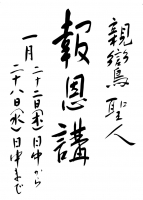 親鸞聖人
報恩講
一月二十二日(木)日中から
二十八日(水)日中まで